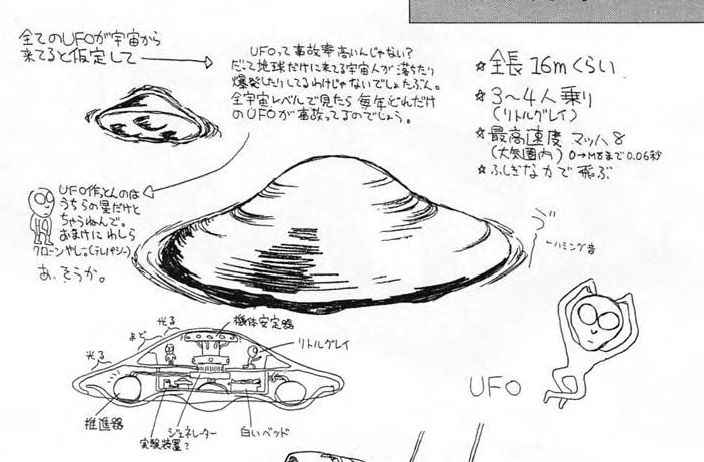 全てのUFOが宇宙から
来てると仮定して
UFOって事故率高いんじゃない?
だって地球だけに来てる宇宙人が落ちたり
爆発したりしてるわけじゃないでしょたぶん。
全宇宙レベルで見たら毎年どれだけ
のUFOが事故ってるのでしょう。
☆全長16mくらい
☆3〜4人乗り
(リトルグレイ)
☆最高速度 マッハ8
(大気圏内) 0→M8まで0.06秒
☆ふしぎなかで飛ぶ
UFO作っとんのは
うちらの星だけと
ちゃうねんで。
おまけにわしら
クローンやし。(テレパシー)
あ、そうか。
ハミング音
光る
まど
光る
機体安定器
リトルグレイ
推進器
実験装置?
ジェネレーター
白いベッド
UFO